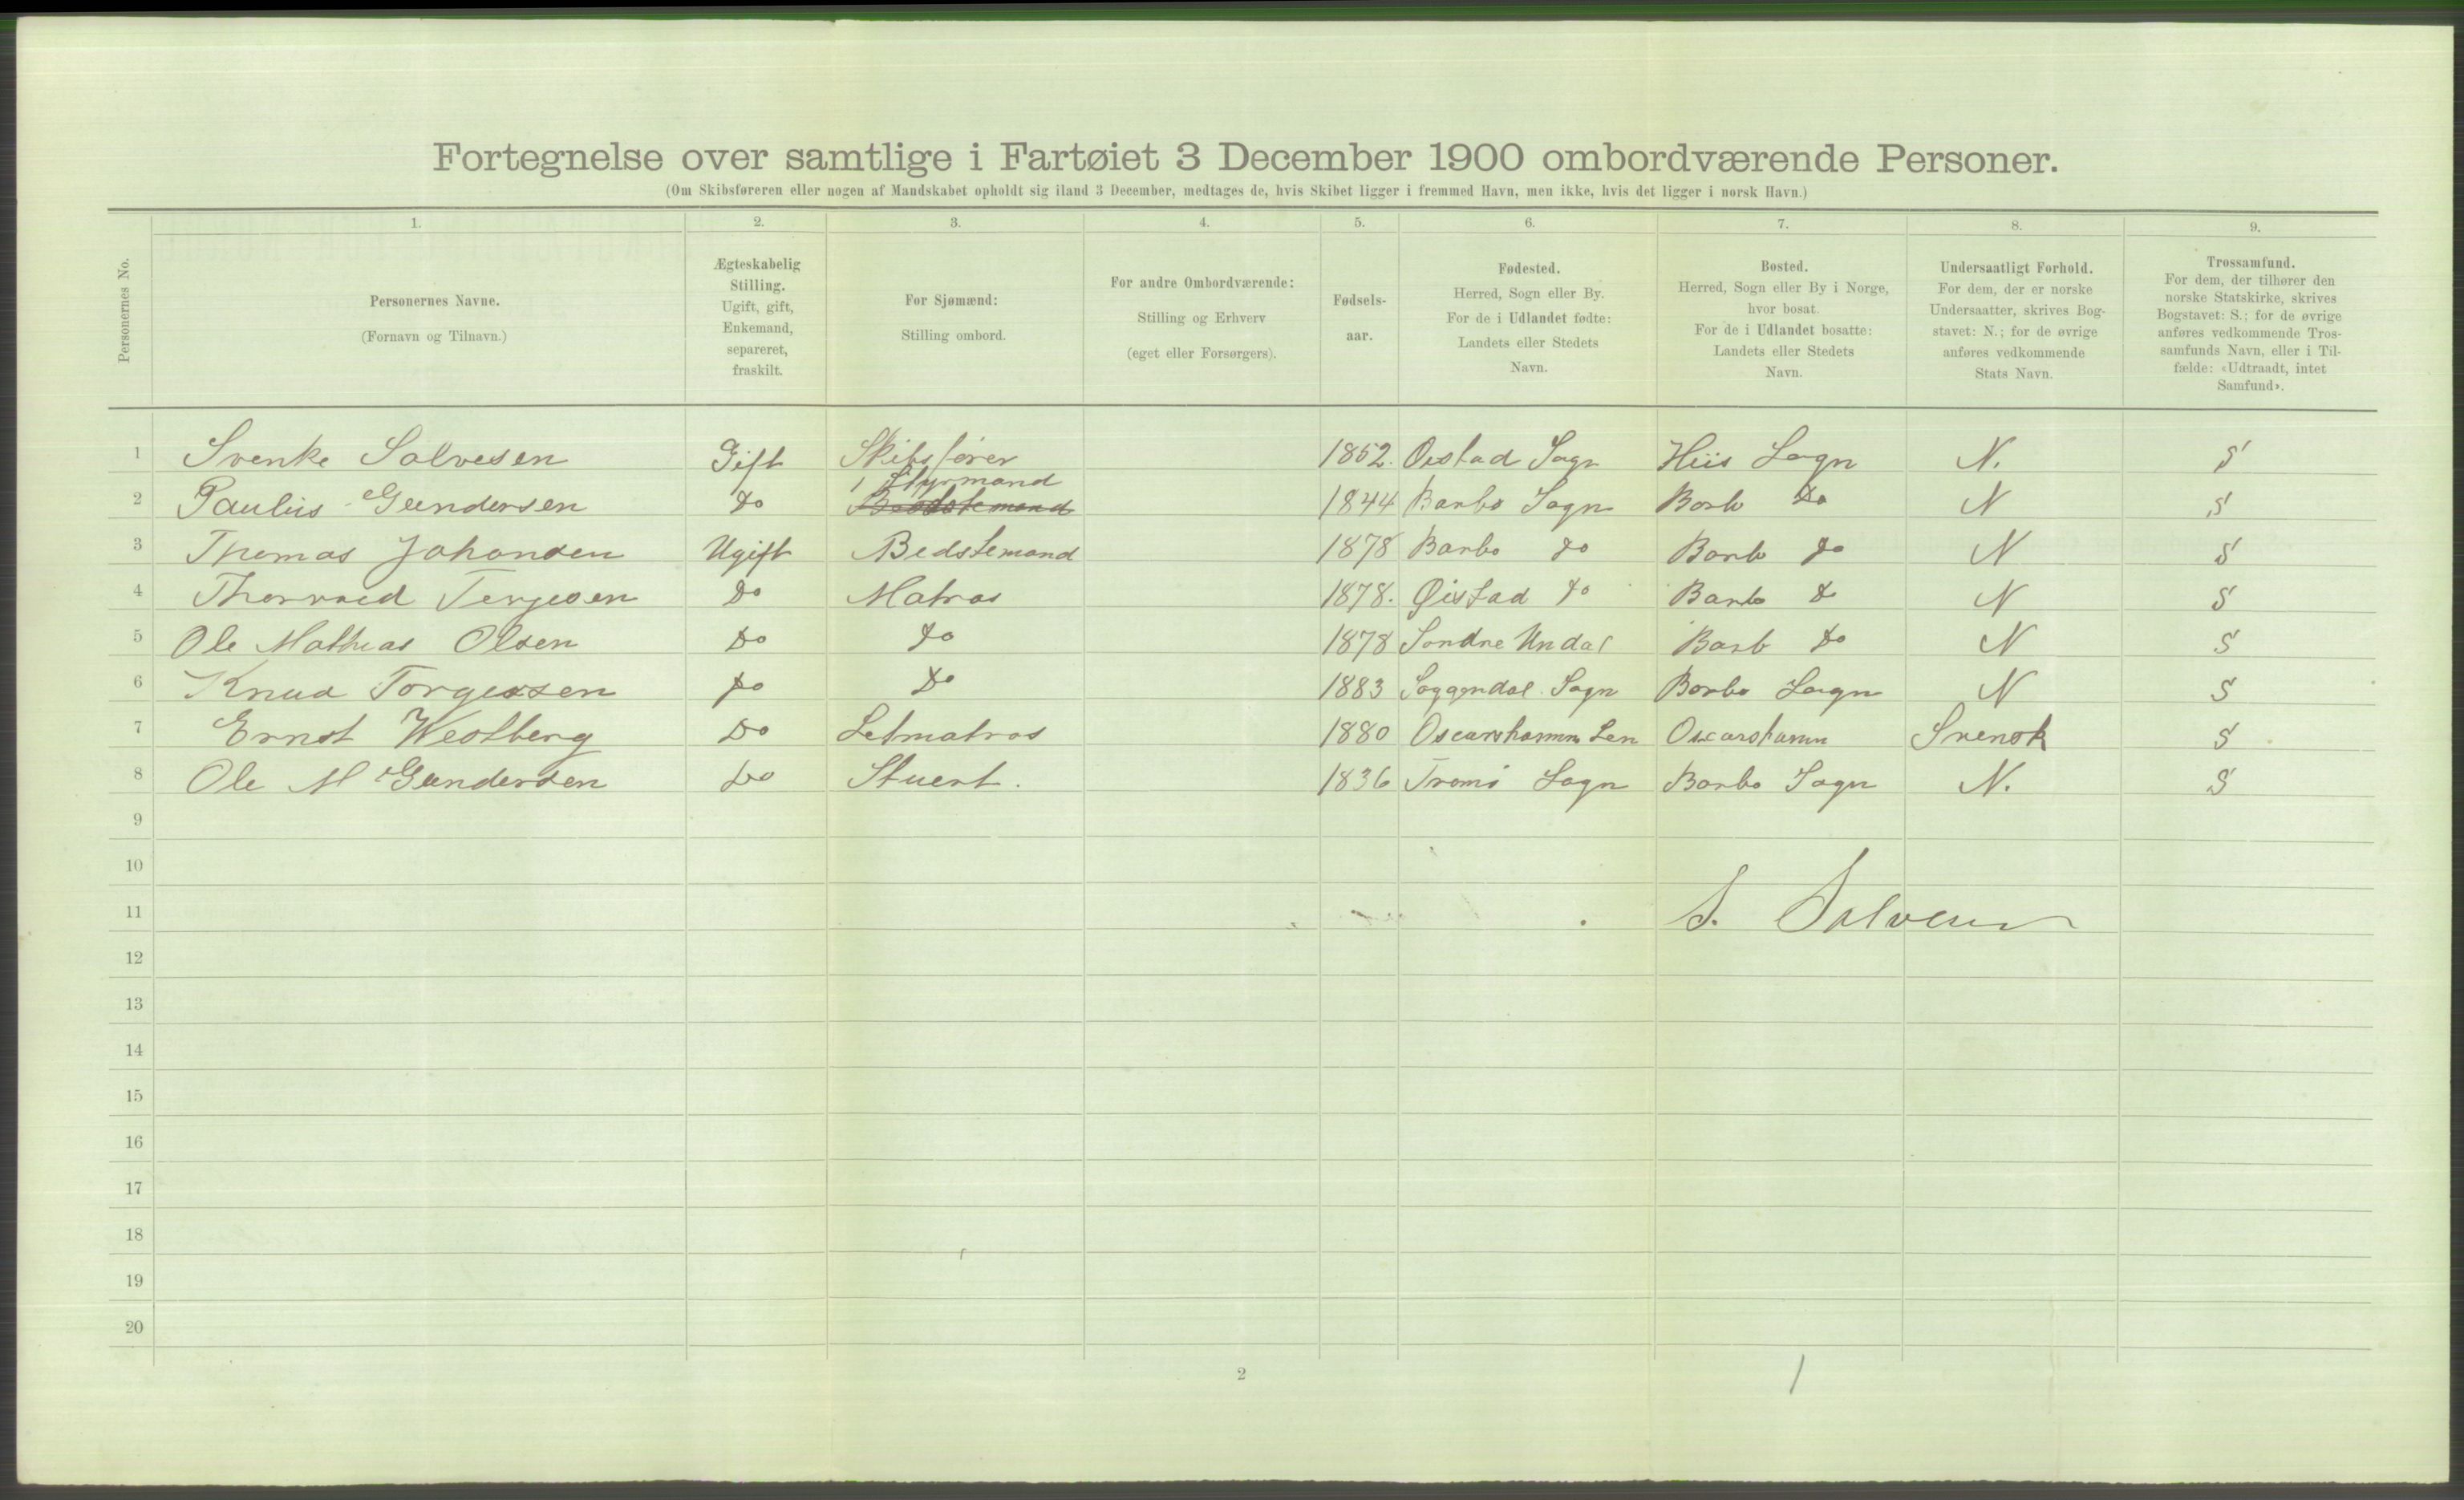 Fortegnelse over samtlige i Fartøiet 3 December 1900 ombordværende Personer.
(Om Skibsføreren eller nogen af Mandskabet opholdt sig iland 3 December, medtages de, hvis Skibet ligger i fremmed Havn, men ikke, hvis det ligger i norsk Havn.)
Personernes No.
1.
Personernes Navne.
(Fornavn og Tilnavn.)
2.
Ægteskabelig
Stilling.
Ugift, gift,
Enkemand,
separeret,
fraskilt.
3.
For Sjømænd:
Stilling ombord.
4.
For andre Ombordværende:
Stilling og Erhverv
(eget eller Forsørgers).
5.
Fødsels-
aar.
6.
Fødested.
Herred, Sogn eller By.
For de i Udlandet fødte:
Landets eller Stedets
Navn.
7.
Bosted.
Herred, Sogn eller By i Norge,
hvor bosat.
For de i Udlandet bosatte:
Landets eller Stedets
Navn.
8.
Undersaatligt Forhold.
For dem, der er norske
Undersaatter, skrives Bog-
stavet: N.; for de øvrige
anføres vedkommende
Stats Navn.
9.
Trossamfund.
For dem, der tilhører den
norske Statskirke, skrives
Bogstavet: S.; for de øvrige
anføres vedkommende Tros-
samfunds Navn, eller i Til-
fælde: «Udtraadt, intet
Samfund».
1 Svenke Salvesen Gift Skibsfører 1852. Oistad Sogn Hiis Sogn N. S
1 Styrmand
2 Paulius Gundersen Do 1844 Barbo Sogn Barb Do N S
3 Thomas Johansen Ugift Bedstemand 1878 Barbo Do Barb Do N S
4 Thorvaed Terjesen Do Matros 1878. Øistad Do Barb Do N S
5 Ole Mathias Olsen Do Do 1878 Søndre Undal Barb Do N S
6 Knud Torgersen Do Do 1883 Soggendal Sogn Barbo Sogn N S
7 Ernst Westberg Do Letmatros 1880 Oscarshamn Len Oscarshamn Svensk S
8 Ole M Gundersen Do Stuert. 1836 Tromø Sogn Barbo Sogn N. S
9
10
11 S. Salvesen
12
13
14
15
16
17
18
19
20
2
1